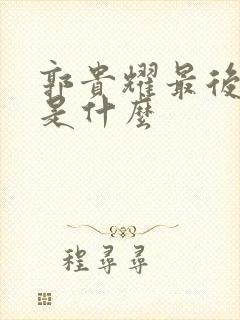 郭貴耀最後
是什麼
程尋尋